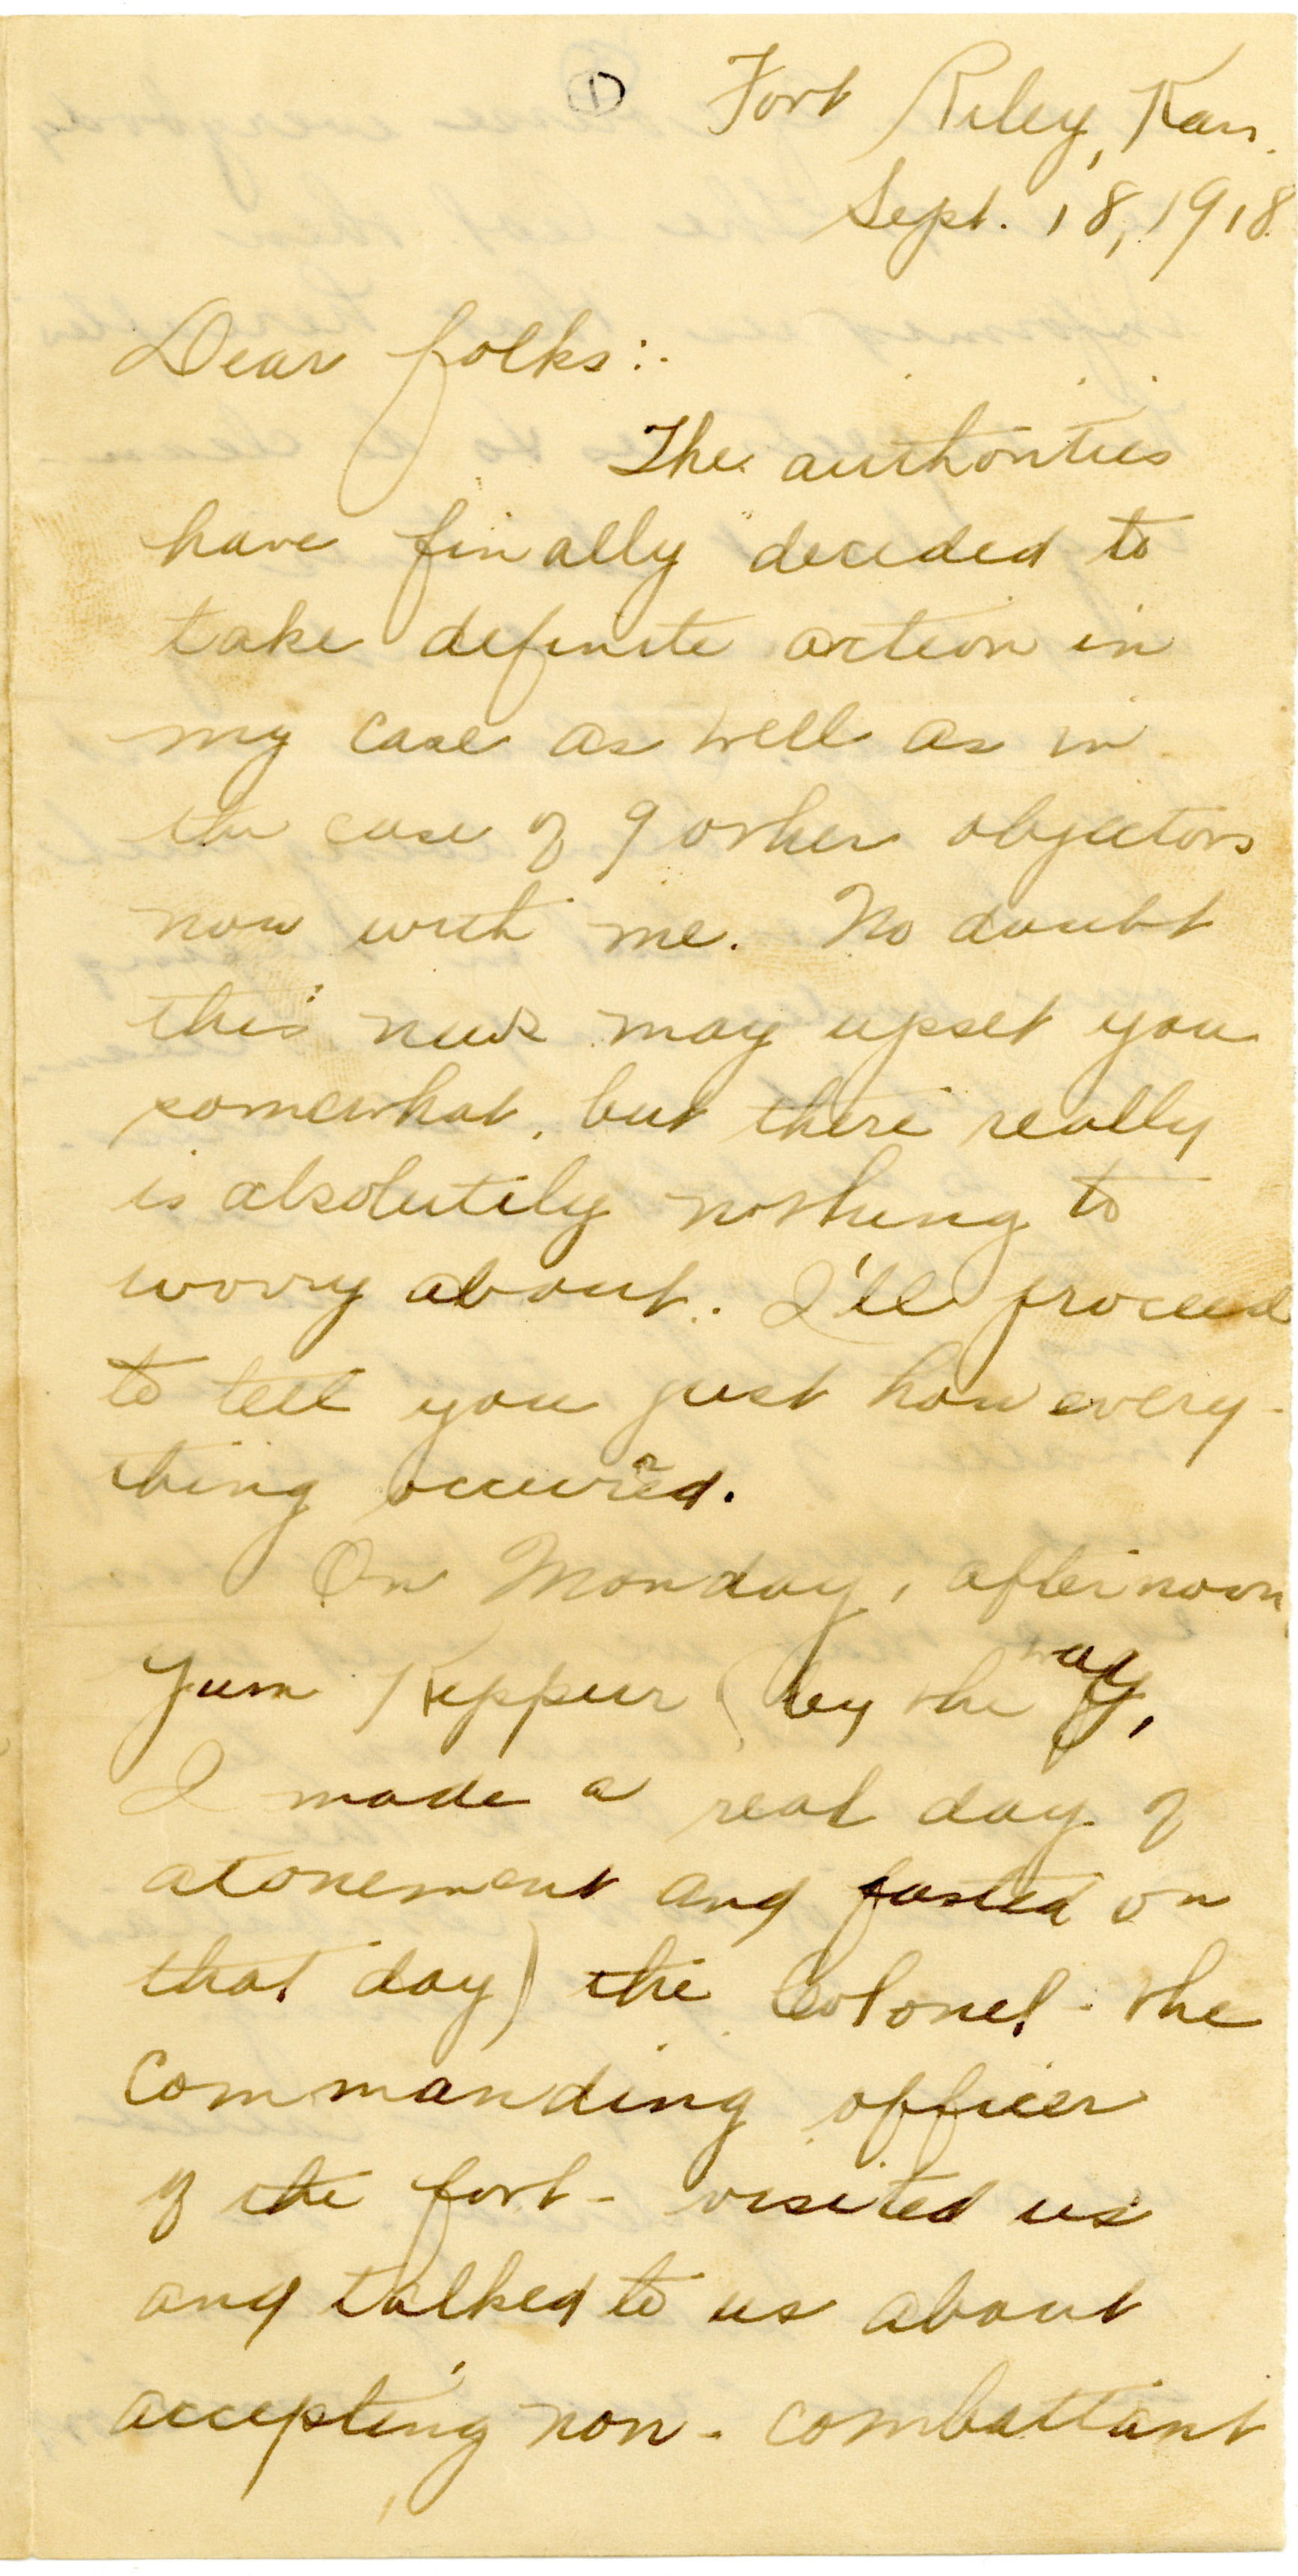 ①
Fort Riley, Kan.
Sept. 18, 1918.
Dear folks:
The authorities
have finally decided to
take definite action in
my case as well as in
the case of 9 other objectors
now with me. No doubt
this news may upset you
somewhat, but there really
is absolutely nothing to
worry about. I'll proceed
to tell you just how every-
thing occurred.
On Monday, afternoon,
Yum Kippur (by the way,
I made a real day of
atonement and fasted on
that day) the Colonel - the
Commanding officer
of the fort - visited us
and talked to us about
accepting non-combattant